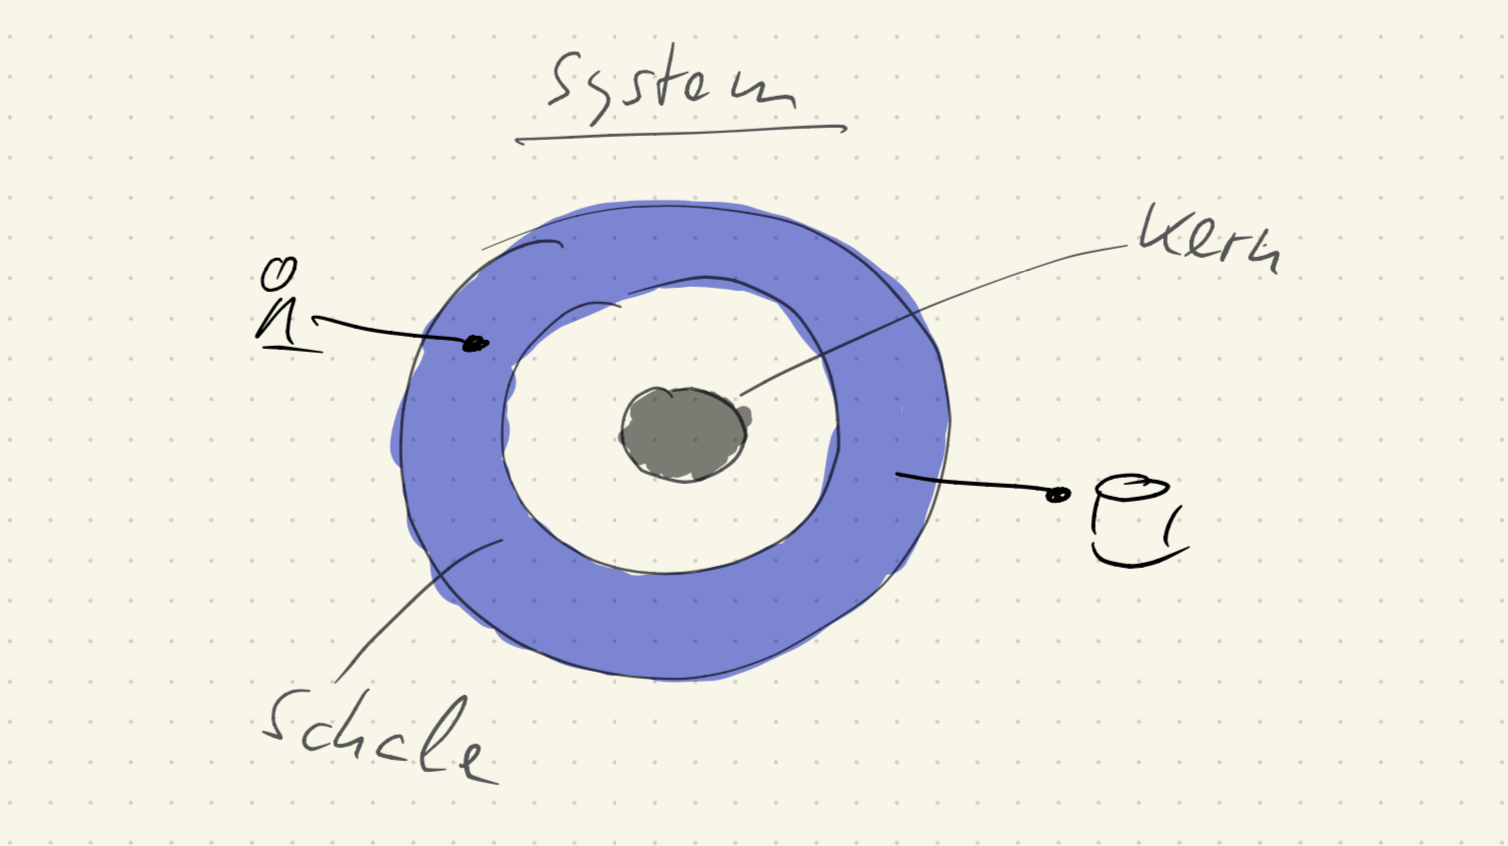 System
Kern
Schale